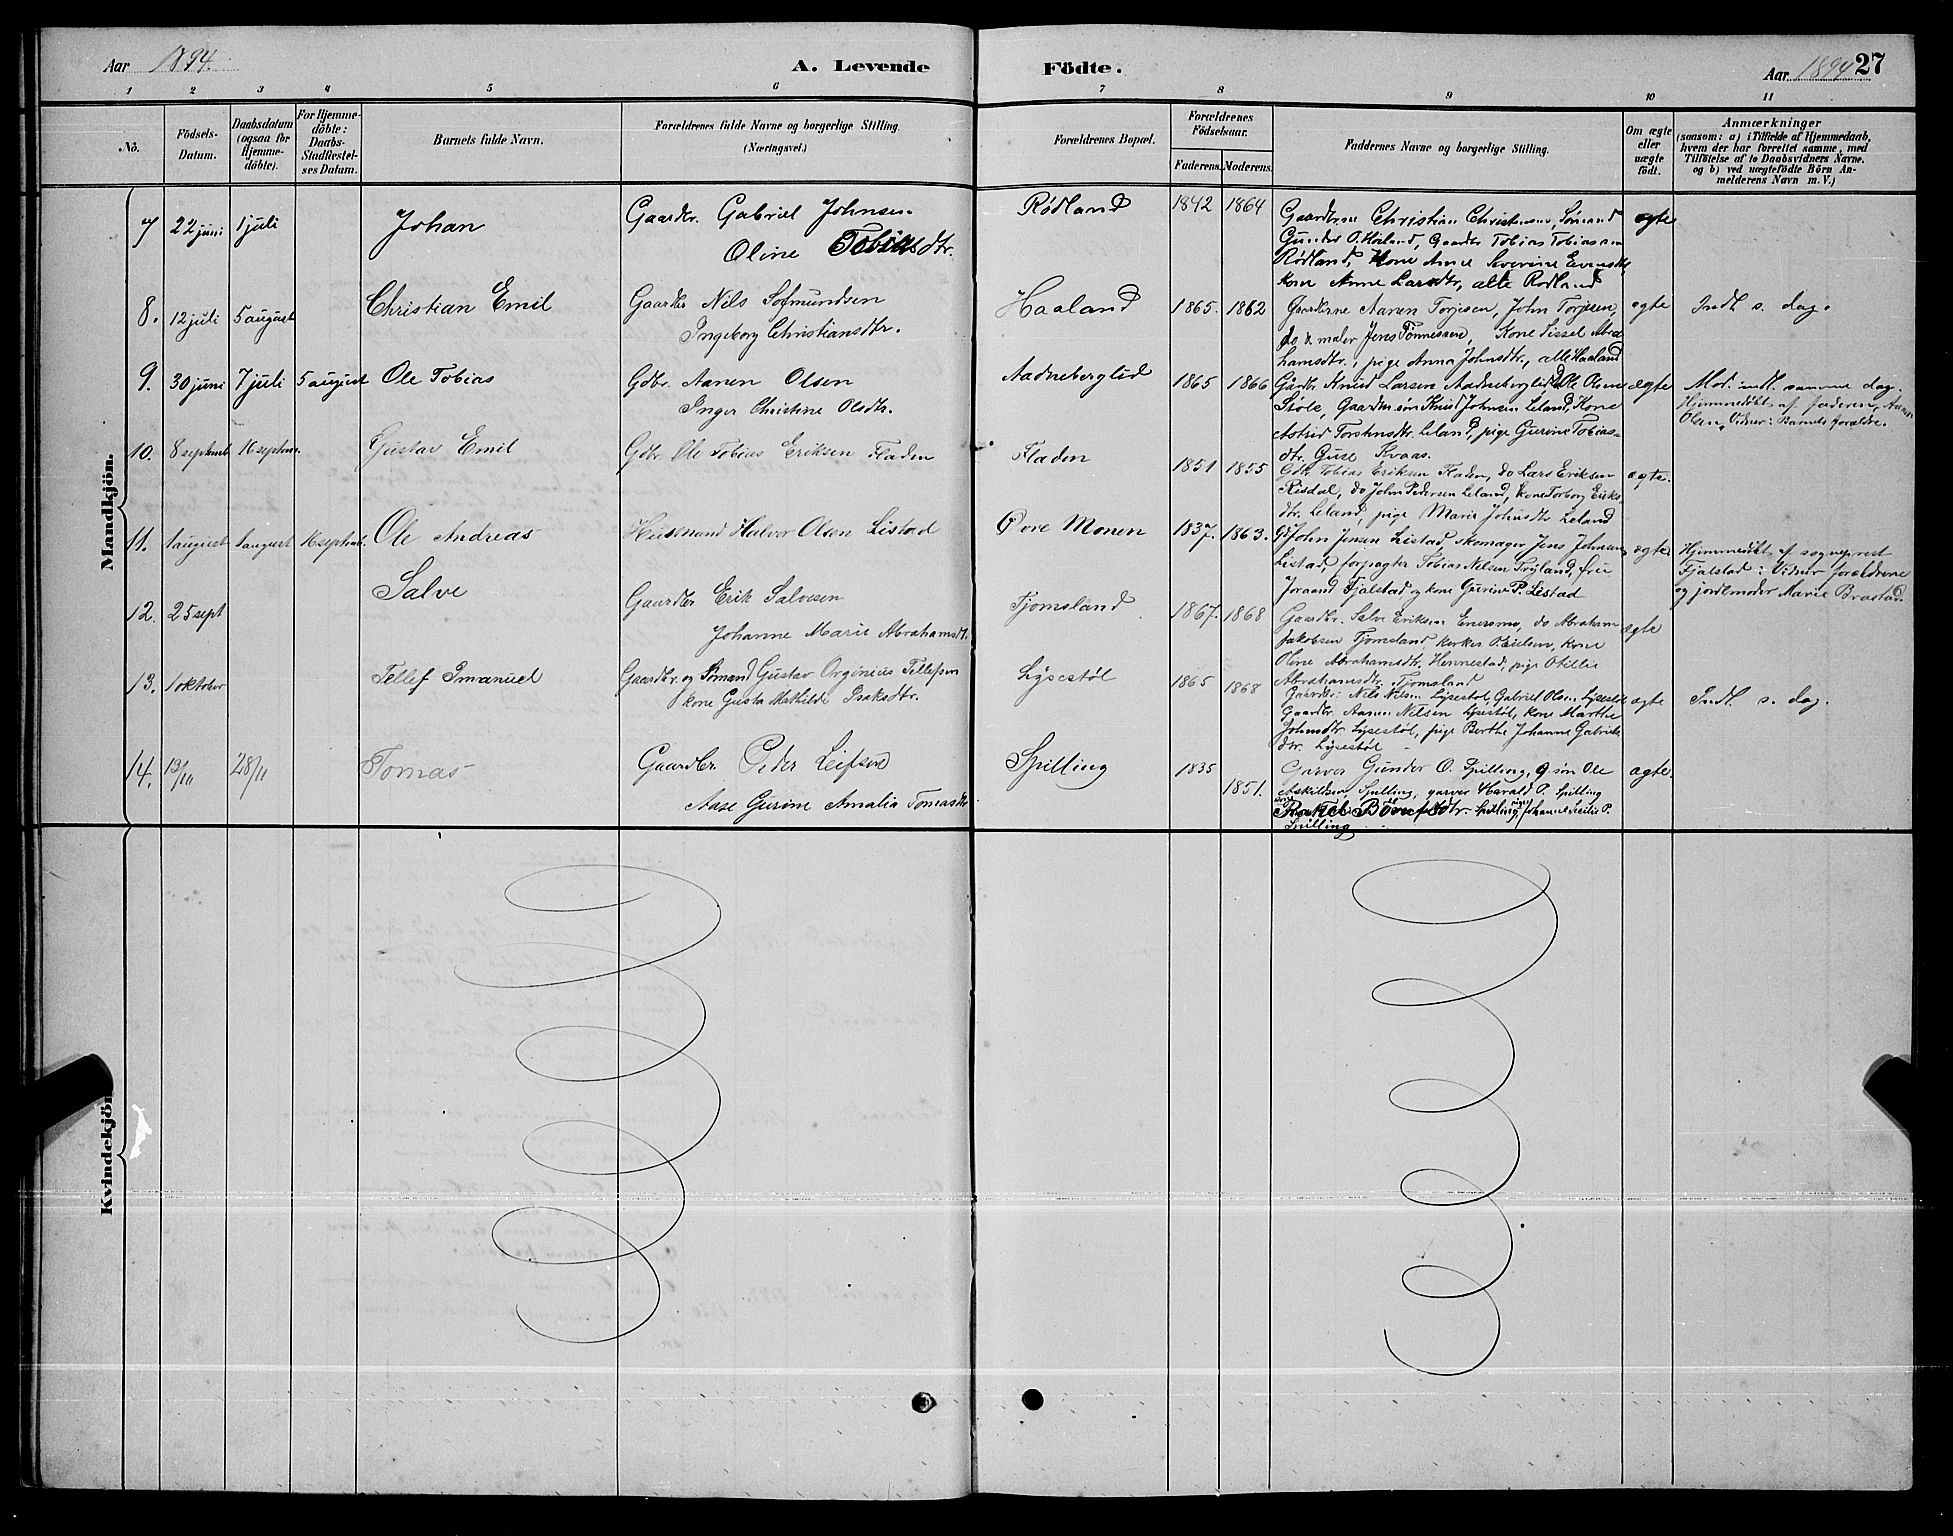 Aar 1894.
A. Levende
Födte.
Aar 1894
27
1 2 3 4 5 6 7 8 9 10 11
No.
Födsels-
Datum.
Daabsdatum
(ogsaa for
Hjemme-
döbte).
For Hjemme-
döbte:
Daabs-
Stadfæstel-
ses Datum.
Barnets fulde Navn.
Forældrenes fulde Navne og borgerlige Stilling.
(Næringsvei.)
Forældrenes Bopæl.
Forældrenes
Födselsaar.
Faderens. Moderens.
Faddernes Navne og borgerlige Stilling.
Om ægte
eller
uægte
födt.
Anmærkninger
(saasom: a) i Tilfælde af Hjemmedaab,
hvem der har forrettet samme, med
Tilföielse af to Daabsvidners Navne.
og b) ved uægtefödte Börn An-
melderens Navn m. V.)
Mandkjön.
7 22 juni 1 juli Johan Gaardbr. Gabriel Johnsen
Oline Tobiasdtr.
Rødland 1842 1864
Gaardbrne Christian Christensen, Sømand
Gunder O. Høiland, Gaardbr Tobias Tobiassen
Rødland, Kone Anne Severine Evensdtr
kone Anne Larsdtr, alle Rødland
ægte
8. 12 juli 5 august Christian Emil Gaardbr Nils Sofmundsen
Ingeborg Christiansdtr.
Haaland 1865. 1862
Gaardbrne Aanen Torjesen, John Torjesen,
do & maler Jens Tønnessen, Kone Sissel Abra
hamsdtr., pige Anna Johnsdtr., alle Haaland
ægte Indl. s. dag.
9. 30 juni 7 juli 5 august Ole Tobias Gdbr. Aanen Olsen
Inger Christine Olsdtr.
Aadneberglid 1865 1866
Gårdbr. Knud Larsen Aadneberglid, Ole Olsen
Støle, Gaardbrsøn Knud Johnsen Leland, Kone
Astrid Torstensdtr. Leland, pige Gurine Tobias-
dtr. Guse Kvaas.
ægte Mod. indl. samme dag.
Hjemmedøbt af faderen, Aanen
Olsen, Vidner: Barnets forældre.
10. 8 septembr 16 septem. Gustav Emil Gdbr. Ole Tobias Eriksen Fladen
Fladen 1851 1855
Gdbr. Tobias Eriksen Fladen, do Lars Eriksen
Risdal, do John Pedersen Leland, Kone Torborg Eriks
dtr. Leland, pige Marie Johnsdtr Leland
ægte.
11. 1 august 1 august 16 septembr. Ole Andreas Husmand Halvor Olsen Listad
Øvre Monen 1837. 1863.
John Jensen Listad skomager Jens Johnsen
Listad, forpagter Tobias Nielsen Tryland, fru
Joraand Fjalstad og kone Gurine P. Listad
ægte Hjemmedøbt af sogneprest
Fjalstad: Vidner forældrene
og jordemoder Marie Brastad
12. 25 sept Salve Gaardbr Erik Salvesen
Johanne Marie Abrahamsdt.
Tjomsland 1867. 1868
Gaardbr. Salve Eriksen Enersmo, do Abraham
Jakobsen Tjomsland kirkes. O. Eielsen, kone
Oline Abrahamsdtr. Hennestad, pige Otillie
Abrahamsdtr. Tjomsland
ægte
13. 1 oktober Tellef Imanuel Gaardbr. og Sømand Gustav Orginius Tellefsen
kone Gusta Mathilde Isaksdtr.
Lysestøl 1865 1868
Gaardbr: Nils Nilsen Lysestøl, Gabriel Olsen Lysestøl
Gaardbr. Aanen Nilsen Lysestøl, kone Marthe
Johnsdtr Lysestøl, pige Berthe Johanne Gabriels
dtr. Lysestøl
ægte Indl. s. dag.
14. 13/10 28/11 Tomas Gaardbr Peder Leifsen
Aase Gurine Amalia Tomasdtr
Spilling 1835 1851.
Garver Gunder O. Spilling, g. søn Ole
Askildsen Spilling, garver Harald P. Spilling
Rakel dtr. Spilling, pige Johanne Cecilie P.
Spilling
ægte.
Kvindekjön.